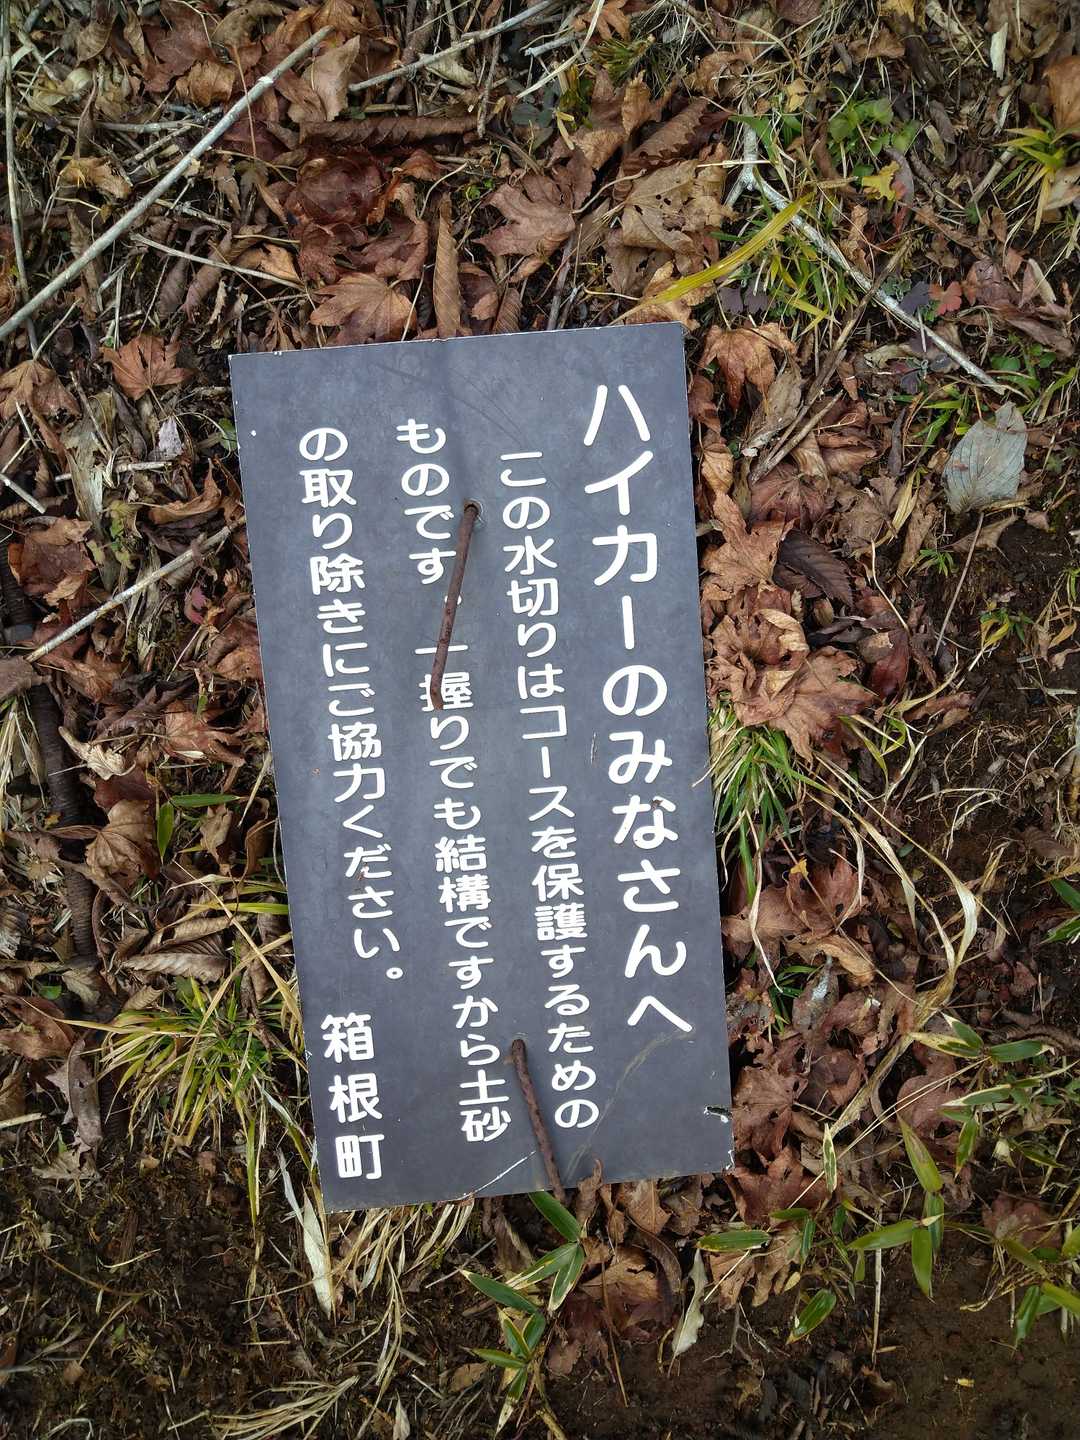 ハイカーのみなさんへ
この水切りはコースを保護するための
ものです。一握りでも結構ですから土砂
の取り除きにご協力ください。 箱根町